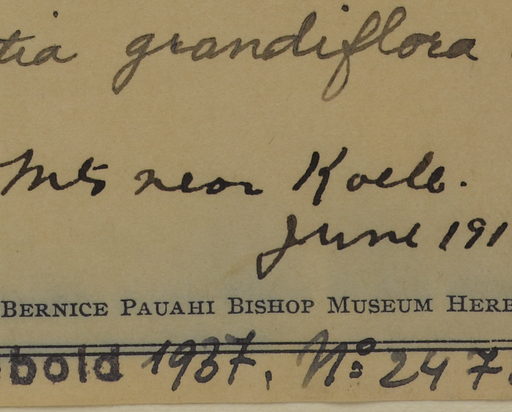 tia grandiflora
Mts near Koele.
June 191
BERNICE PAUAHI BISHOP MUSEUM HERB
bold 1937. No: 247